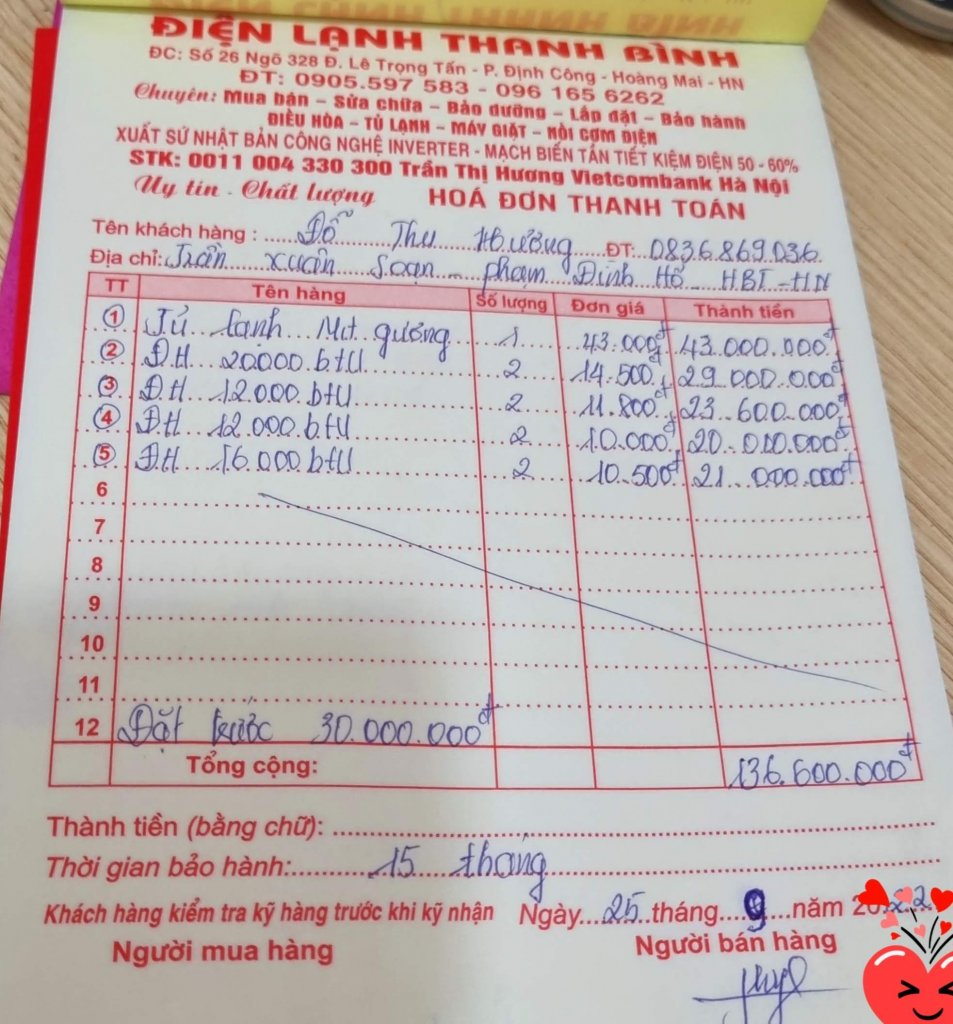 ĐIỆN LẠNH THANH BÌNH
ĐC: Số 26 Ngõ 328 Đ. Lê Trọng Tấn - P. Định Công - Hoàng Mai - HN
ĐT: 0905.597 583 - 096 165 6262
Chuyên: Mua bán – Sửa chữa – Bảo dưỡng – Lắp đặt – Bảo hành
ĐIỀU HÒA – TỦ LẠNH – MÁY GIẶT – NỒI CƠM ĐIỆN
XUẤT SỨ NHẬT BẢN CÔNG NGHỆ INVERTER - MẠCH BIẾN TẦN TIẾT KIỆM ĐIỆN 50 - 60%
STK: 0011 004 330 300 Trần Thị Hương Vietcombank Hà Nội
Uy tín - Chất lượng HOÁ ĐƠN THANH TOÁN
Tên khách hàng : Đỗ Thu Hường ĐT: 0836.869.036
Địa chỉ: Trần xuân Soạn phạm Đình Hổ HBT - HN
TT Tên hàng Số lượng Đơn giá Thành tiền
1 Tủ lạnh Mit gương 1 43.000đ 43.000.000đ
2 ĐH 20.000.btU 2 14.500đ 29.000.000đ
3 ĐH 12.000.btU 2 11.800đ 23.600.000đ
4 ĐH 12.000.btU 2 10.000đ 20.000.000đ
5 ĐH 16.000btU 2 10.500đ 21.000.000đ
6
7
8
9
10
11
12 Đặt trước 30.000.000đ
Tổng cộng: 136.600.000đ
Thành tiền (bằng chữ):
Thời gian bảo hành: 15 tháng
Khách hàng kiểm tra kỹ hàng trước khi ký nhận Ngày 25 tháng 9 năm 2022
Người mua hàng Người bán hàng